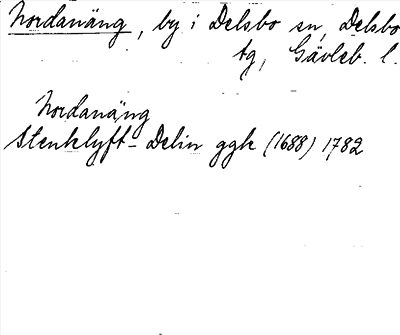 Nordanäng, by i Delsbo sn, Delsbo
tg, Gävleb. l.
Nordanäng
Stenklyft-Delin ggk (1688) 1782